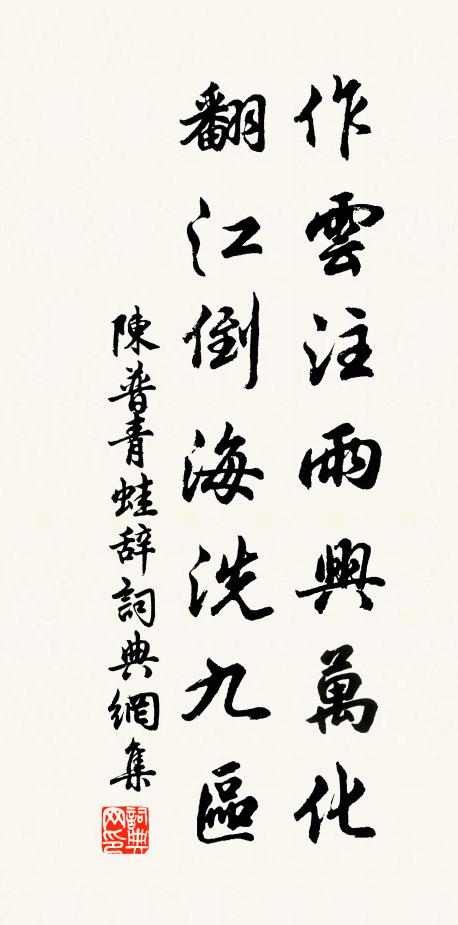 作雲注雨興萬化
翻江倒海洗九區
陳普青蛙辞詞典網集
詞典
网印